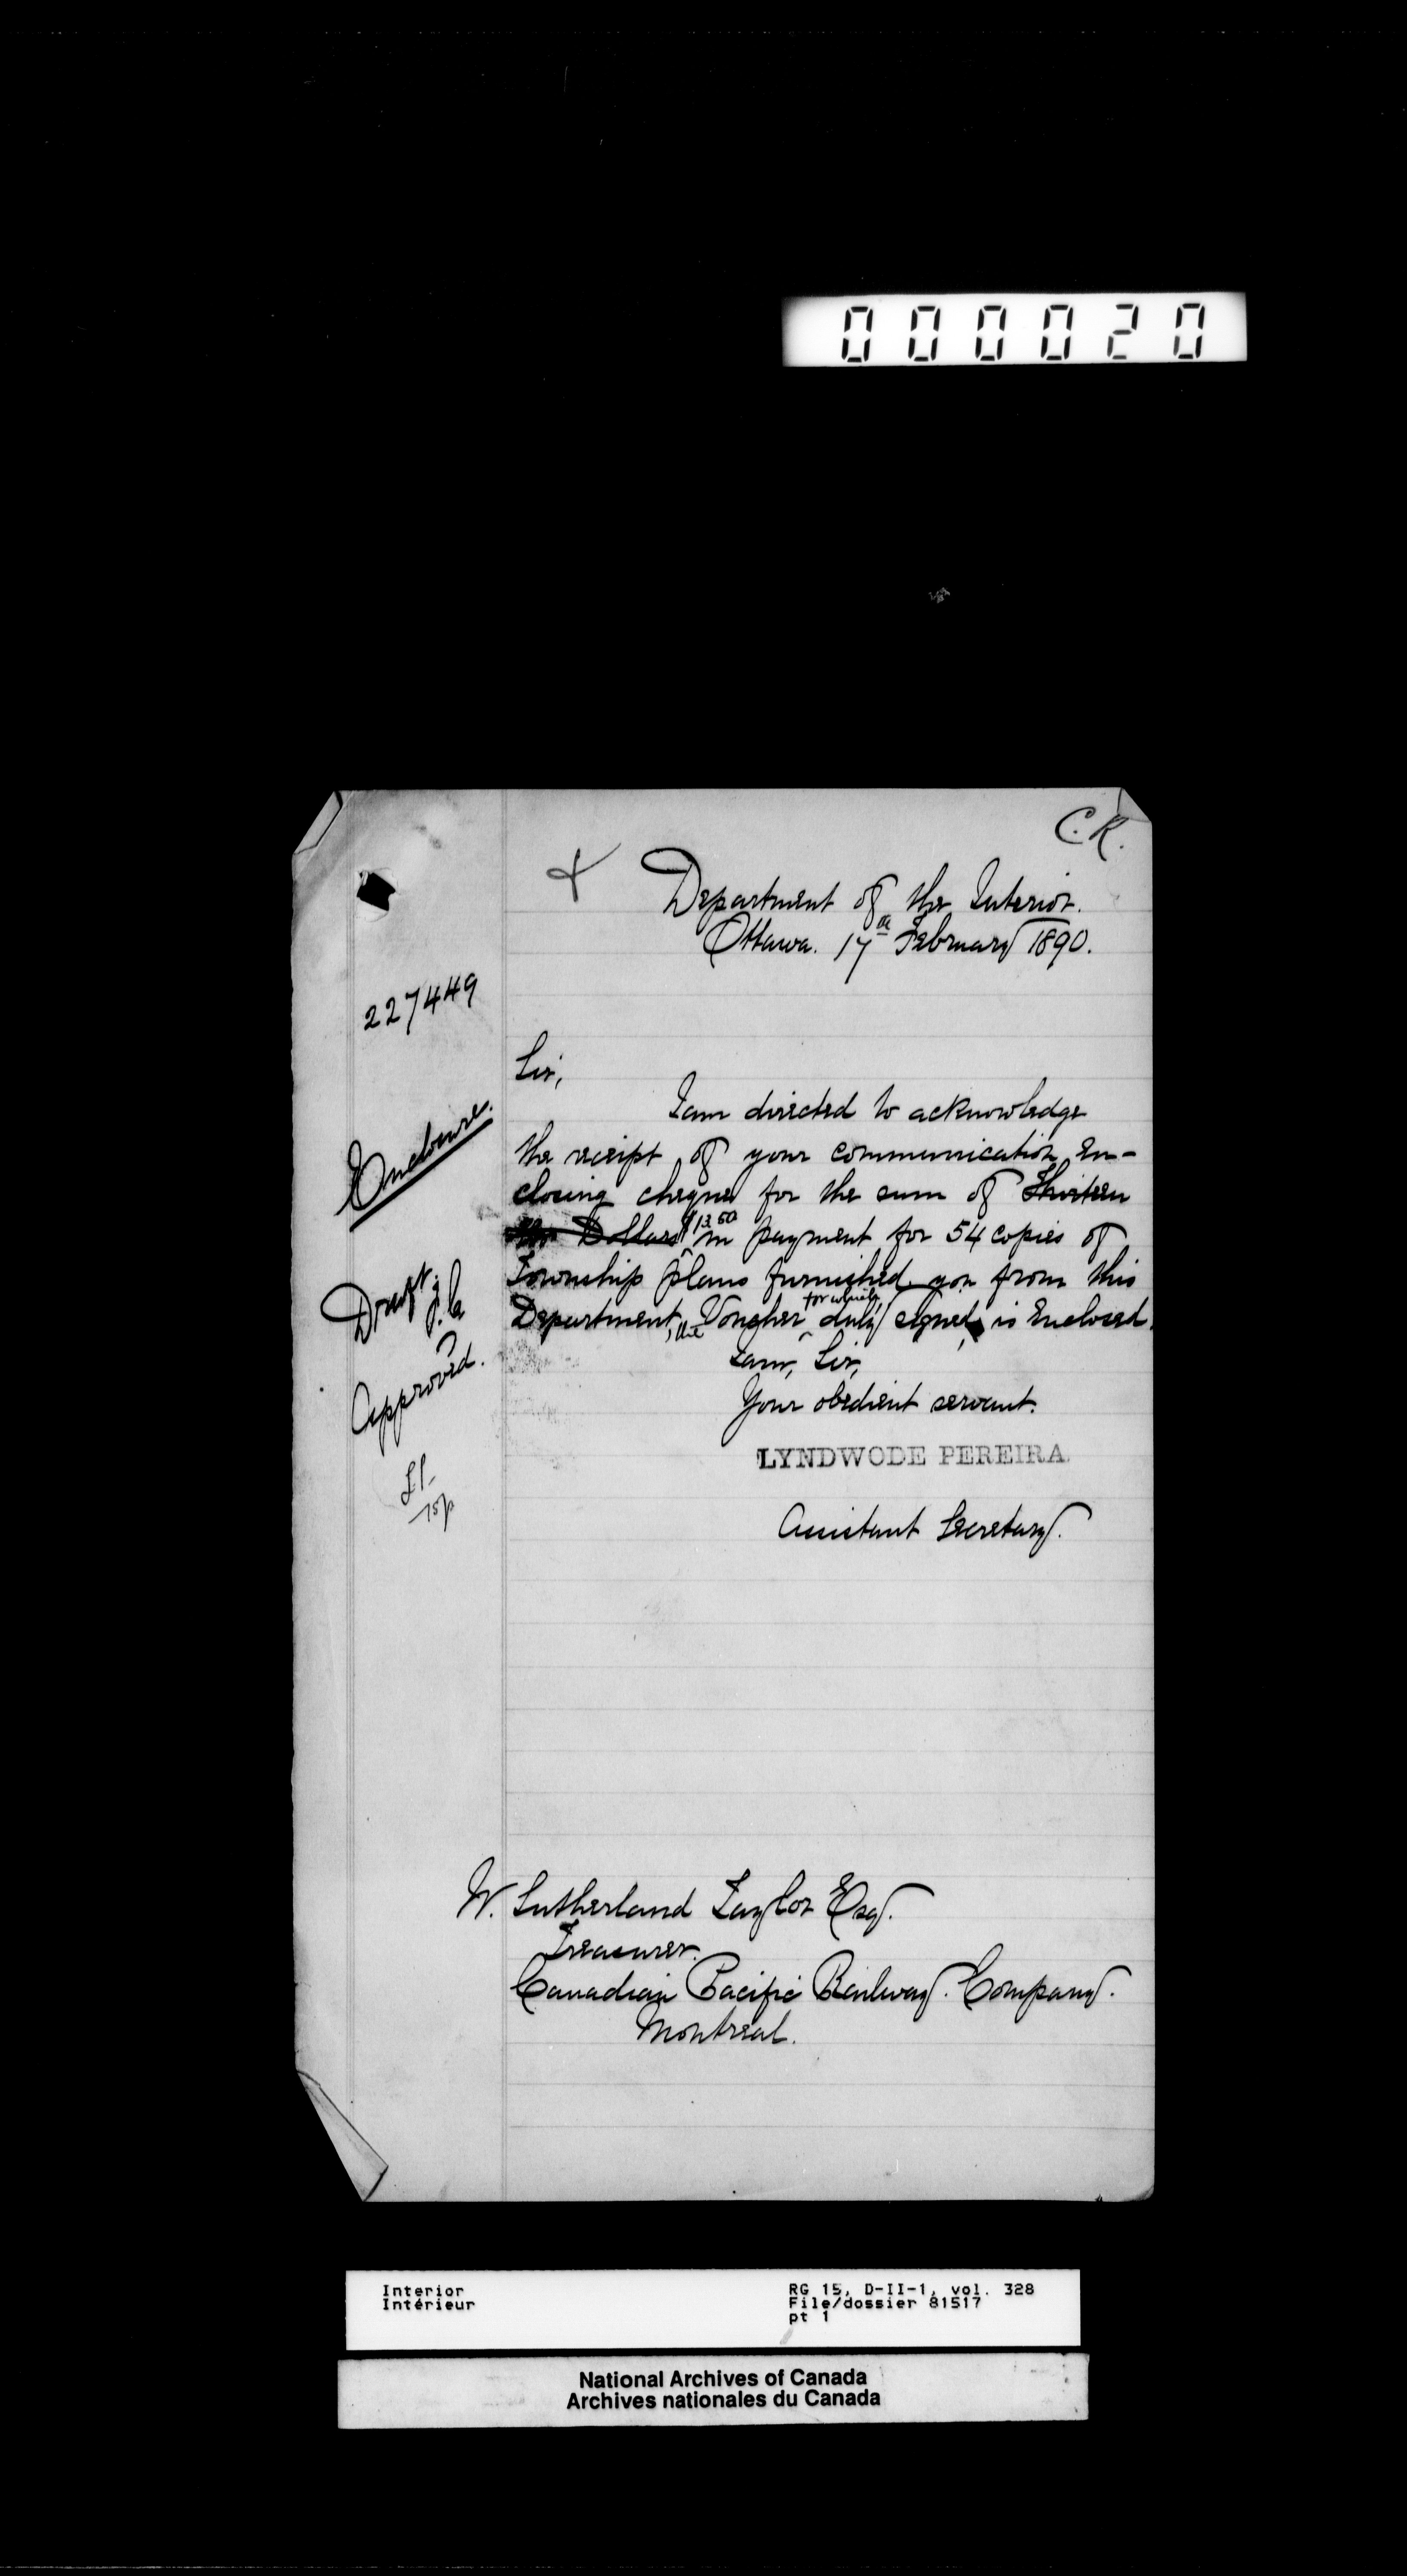 000020
C.K.
Department of the Interior.
Ottawa. 17th February 1890.
227449
Sir,
I am directed to acknowledge
the receipt of your communication en-
closing cheque for the sum of Thirteen
Dollars $13.50 in payment for 54 copies of
Township plans furnished you from this
Department, the Voucher for which, duly signed, is enclosed.
Enclosure.
Draft
Approved.
I am, Sir,
Your obedient servant.
LYNDWODE PEREIRA
Assistant Secretary.
W. Sutherland Taylor Esq.
Treasurer.
Canadian Pacific Railway. Company.
Montreal.
Interior
Intérieur
RG 15, D-II-1, vol. 328
File/dossier 81517
pt 1
National Archives of Canada
Archives nationales du Canada